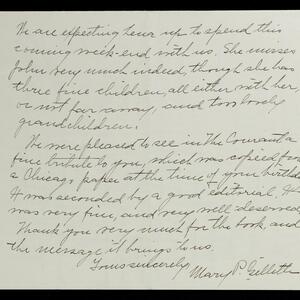 We are expecting her up to spend this
coming week-end with us. She misses
John very much indeed, though she has
three fine children, all either with her,
or not far away, and two lovely
grandchildren.
We were pleased to see in The Courant a
fine tribute to you, which was copied from
a Chicago, paper at the time of your birthday
It was seconded by a good editorial. It
was very fine, and very well deserved
Thank you very much for the book, and
the message it brings to us.
Yours sincerely,
Mary P. Gillette